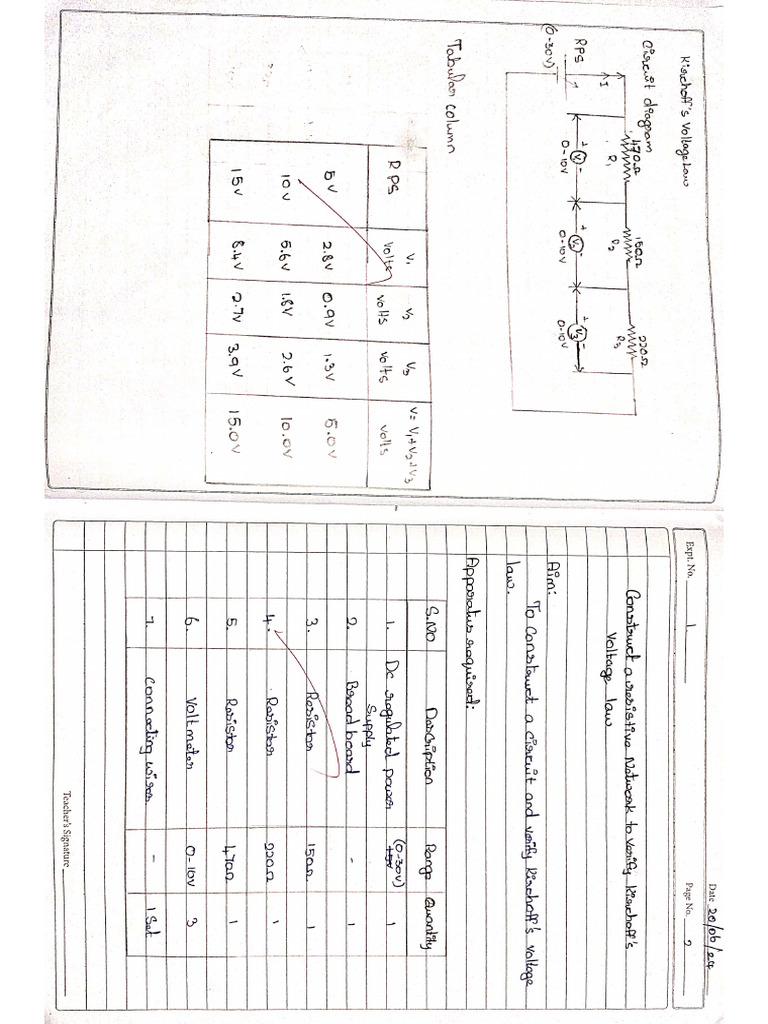 Kirchoff's Voltage Law
Circuit diagram
470Ω
150Ω
220Ω
R1
R2
R3
I
RPS
(0-30V)
+ V1 -
+ V2 -
+ V3 -
0-10V
0-10V
0-10V
Tabular column
RPS V1 Volts V2 Volts V3 Volts V = V1+V2+V3 Volts
5V 2.8V 0.9V 1.3V 5.0V
10V 5.6V 1.8V 2.6V 10.0V
15V 8.4V 2.7V 3.9V 15.0V
Date 20/06/24
Expt. No. 1
Page No. 2
Construct a resistive Network to verify Kirchoff's
Voltage law
Aim:
To Construct a circuit and verify Kirchoff's Voltage
law.
Apparatus required:
S.No Description Range Quantity
1. Dc regulated power Supply (0-30V) 1
2. Bread board - 1
3. Resistor 150Ω 1
4. Resistor 220Ω 1
5. Resistor 470Ω 1
6. Volt meter 0-10V 3
7. Connecting wires - 1 Set
Teacher's Signature